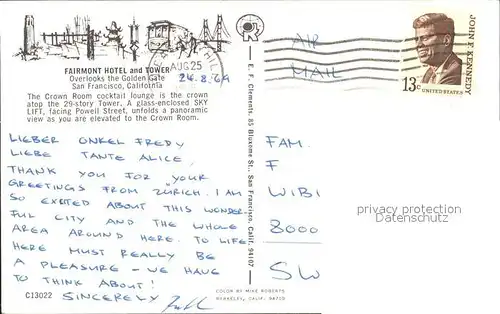 FAIRMONT HOTEL and TOWER
Overlooks the Golden Gate
San Francisco, California
The Crown Room cocktail lounge is the crown
atop the 29-story Tower. A glass-enclosed SKY
LIFT, facing Powell Street, unfolds a panoramic
view as you are elevated to the Crown Room.
AUG 25
24.8.69
LIEBER ONKEL FREDY
LIEBE TANTE ALICE,
THANK YOU FOR YOUR
GREETINGS FROM ZÜRICH. I AM
SO EXCITED ABOUT THIS WONDER-
FUL CITY AND THE WHOLE
AREA AROUND HERE. TO LIFE
HERE MUST REALLY BE
A PLEASURE – WE HAVE
TO THINK ABOUT!
SINCERELY
C13022
E. F. Clements, 85 Bluxome St., San Francisco, Calif. 94107
COLOR BY MIKE ROBERTS
BERKELEY, CALIF. 94710
AIR
MAIL
JOHN F. KENNEDY
13c
UNITED STATES
FAM.
F
WIBI
8000
SW
privacy protection
Datenschutz